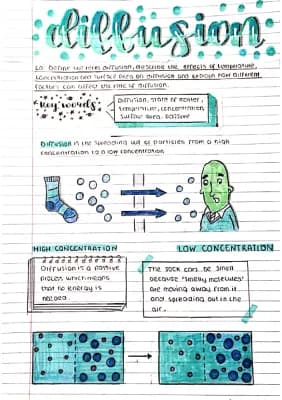 diffusion
LO: Define the term diffusion, describe the effects of temperature,
concentration and surface area on diffusion and explain how different
factors can affect the rate of diffusion.
key words:
Diffusion, state of matter,
temperature, concentration,
surface area, passive
Diffusion is the spreading out of particles from a high
concentration to a low concentration
HIGH CONCENTRATION
LOW CONCENTRATION
Diffusion is a passive
process which means
that no energy is
needed.
The sock can be smelt
because "smelly molecules"
are moving away from it
and spreading out in the
air.